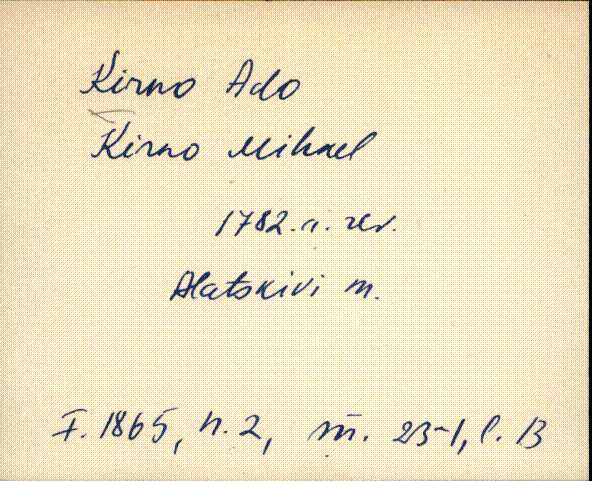 Kirno Ado
Kirno Mihael
1782.a. rev.
Alatskivi m.
F. 1865, n. 2, m̄. 23-1, l. 13